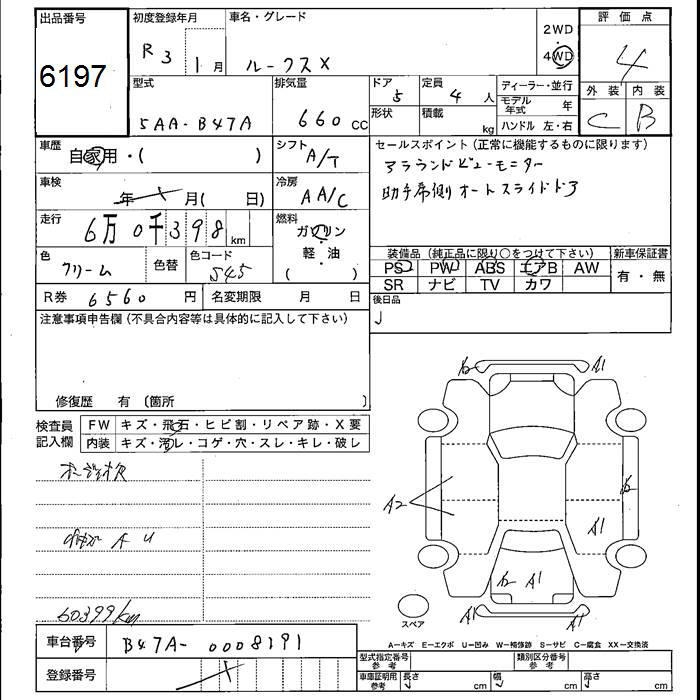 出品番号 初度登録年月 車名・グレード 2WD 評価点
6197 R3 1月 ルークスX 4WD 4
型式 排気量 ドア 定員 ディーラー・並行 外装 内装
5AA-B47A 660cc 5 4人 モデル年式 年 C B
形状 積載 kg ハンドル 左・右
車歴 シフト セールスポイント(正常に機能するものに限ります)
自家用・( ) A/T アラウンドビューモニター
車検 冷房 助手席側オートスライドドア
年 月( 日) AA/C
走行 燃料
6万0千398km ガソリン
軽・油
( )
色 色替 色コード 装備品(純正品に限り○をつけて下さい) 新車保証書
クリーム S45 PS PW ABS エアB AW 有・無
SR ナビ TV カワ
R券 6560円 名変期限 月 日 後日品
注意事項申告欄(不具合内容等は具体的に記入して下さい)
修復歴 有 〔箇所 〕
検査員 FW キズ・飛石・ヒビ割・リペア跡・X要
記入欄 内装 キズ・汚レ・コゲ・穴・スレ・キレ・破レ
A U
60399km
A1
A2
A1
A1
A1
スペア
A=キズ E=エクボ U=凹み W=補修跡 S=サビ C=腐食 XX=交換済
車台番号 B47A-0008391
登録番号
型式指定番号 参考 類別区分番号 参考
車庫証明用 参考 長さ cm 幅 cm 高さ cm